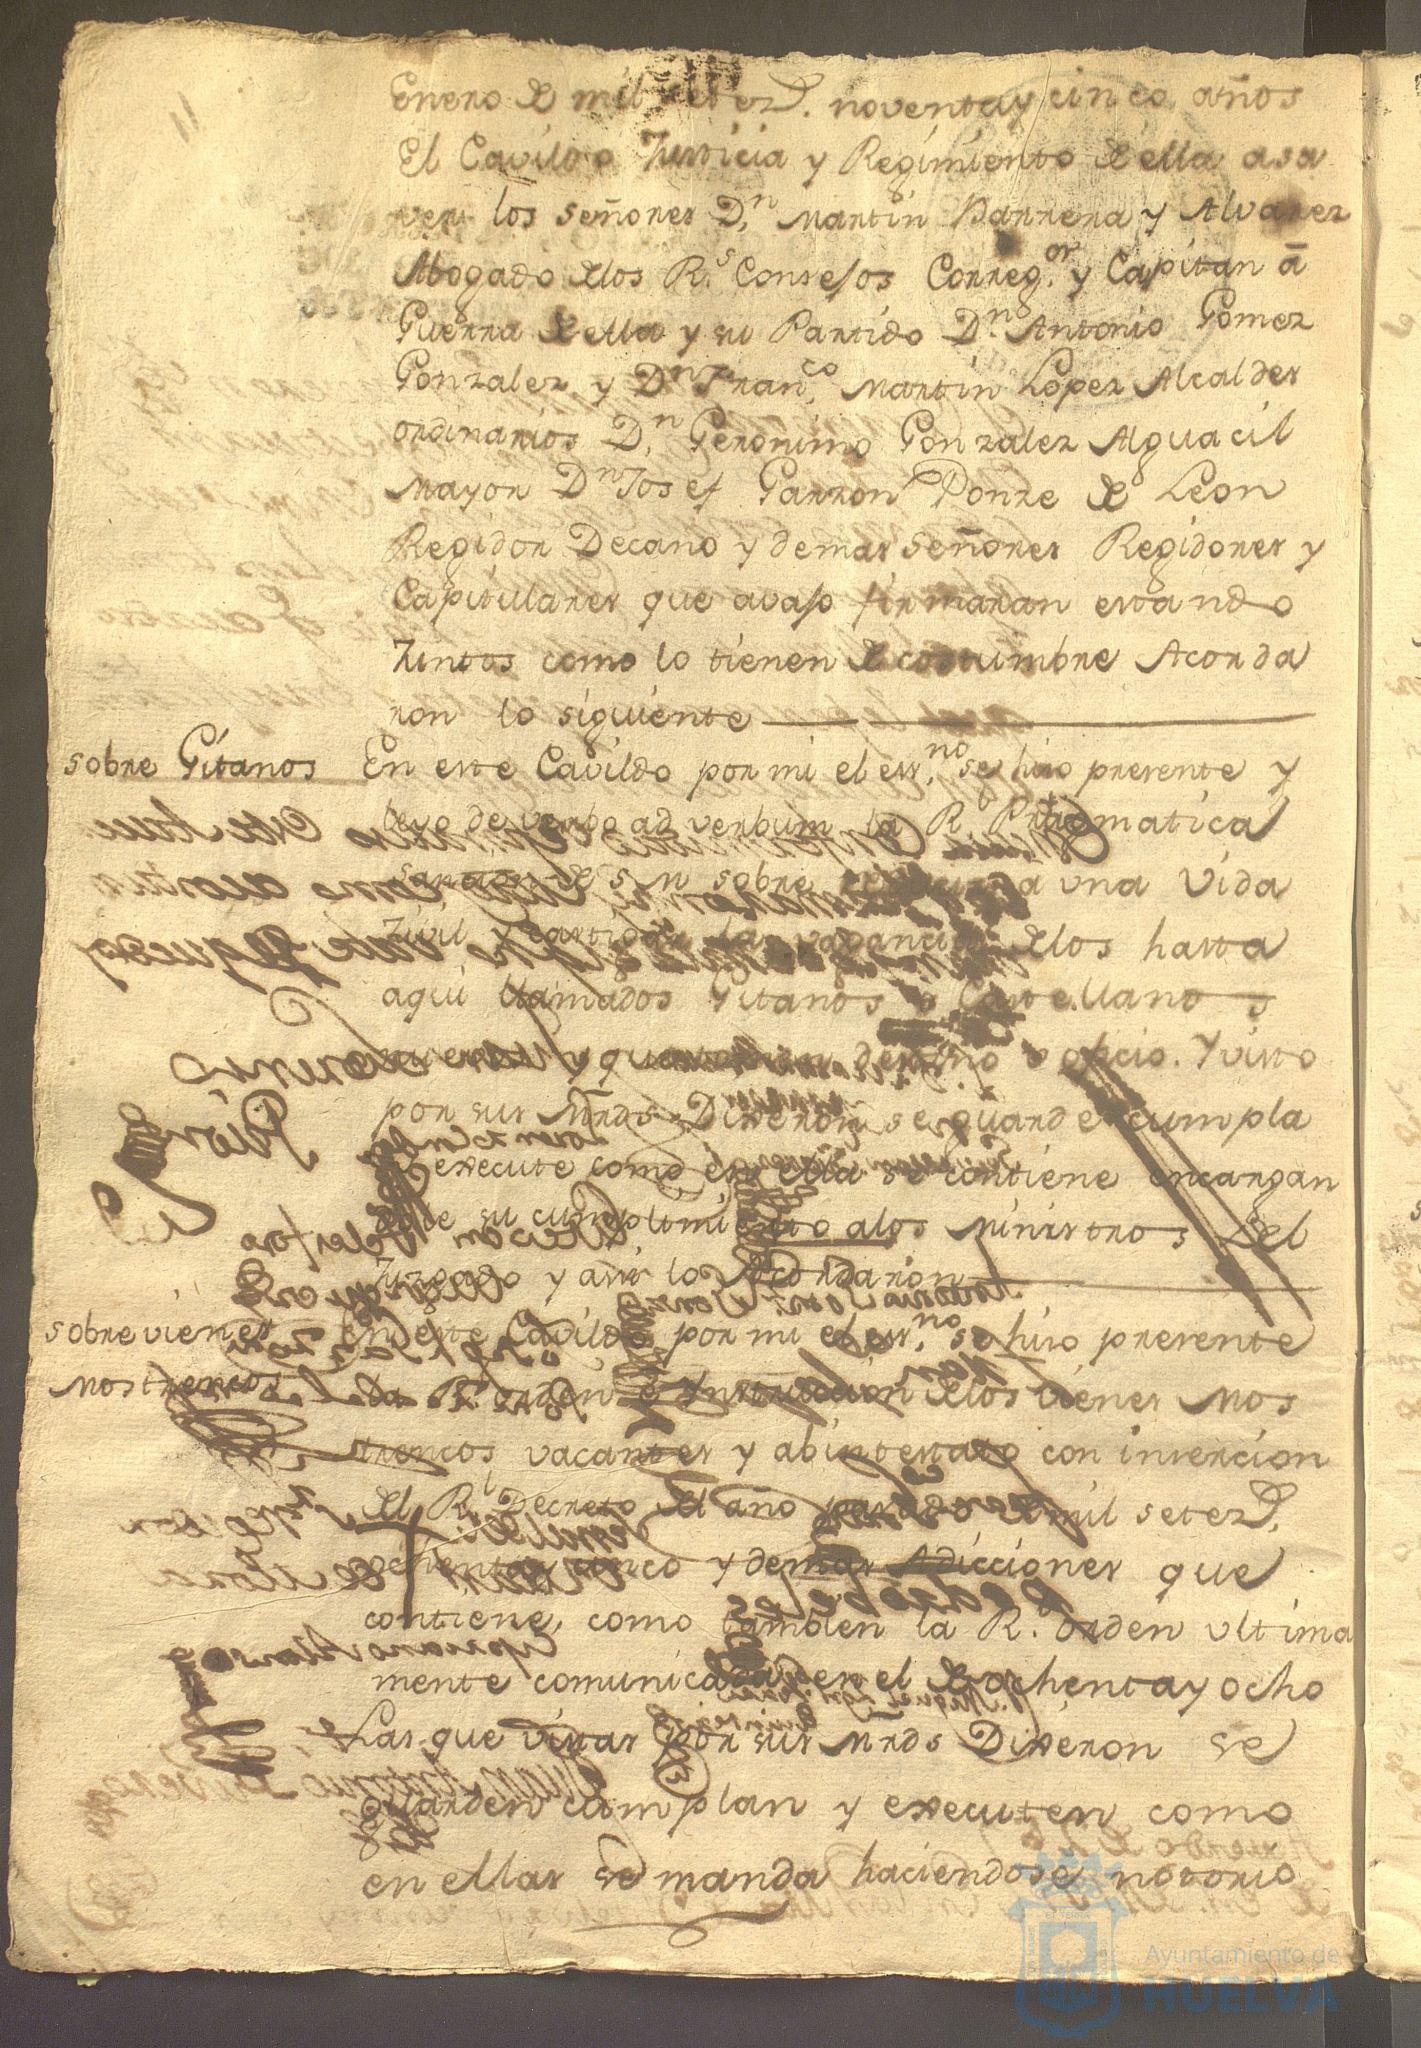 Enero de mil setez.s noventa y cinco años
El Cavildo Justicia y Regimiento de ella asa
ver los señores D.n Martin Barrera y Alvarez
Abogado de los R.s Consejos Correg.or y Capitan a
Guerra de ella y su Partido D.n Antonio Gomez
Gonzalez y D.n Fran.co Martin Lopez Alcaldes
ordinarios D.n Geronimo Gonzalez Alguacil
Mayor D.n Josef Garzon Ponze de Leon
Regidor Decano y demas señores Regidores y
Capitulares que avajo firmaran estando
Juntos como lo tienen de costumbre Acorda
ron lo siguiente
sobre Gitanos En este Cavildo por mi el ess.no se hizo presente y
leyo de verbo ad verbum la R.l Pragmatica
sancion de S M sobre a una vida
zivil y castigar la vagancia de los hasta
aqui llamados Gitanos o Castellanos
nuevos y que destino o oficio. Y visto
por sus Mrds Dixeron se guarde cumpla
execute como en ella se contiene encargan
dose su cumplimiento a los Ministros del
Juzgado y assi lo Acordaron
sobre vienes En este Cavildo por mi el ess.no se hizo presente
Mostrencos la R.l orden e Instruccion de los vienes Mos
trencos vacantes y abintestato con insercion
del R.l Decreto del año pasado de mil setez.s
ochenta y cinco y demas Adicciones que
contiene, como tambien la R.l orden ultima
mente comunicada en el de ochenta y ocho
Las que vistas por sus Mrds Dixeron se
guarden cumplan y executen como
en ellas se manda haciendose notorio
Ayuntamiento de
HUELVA